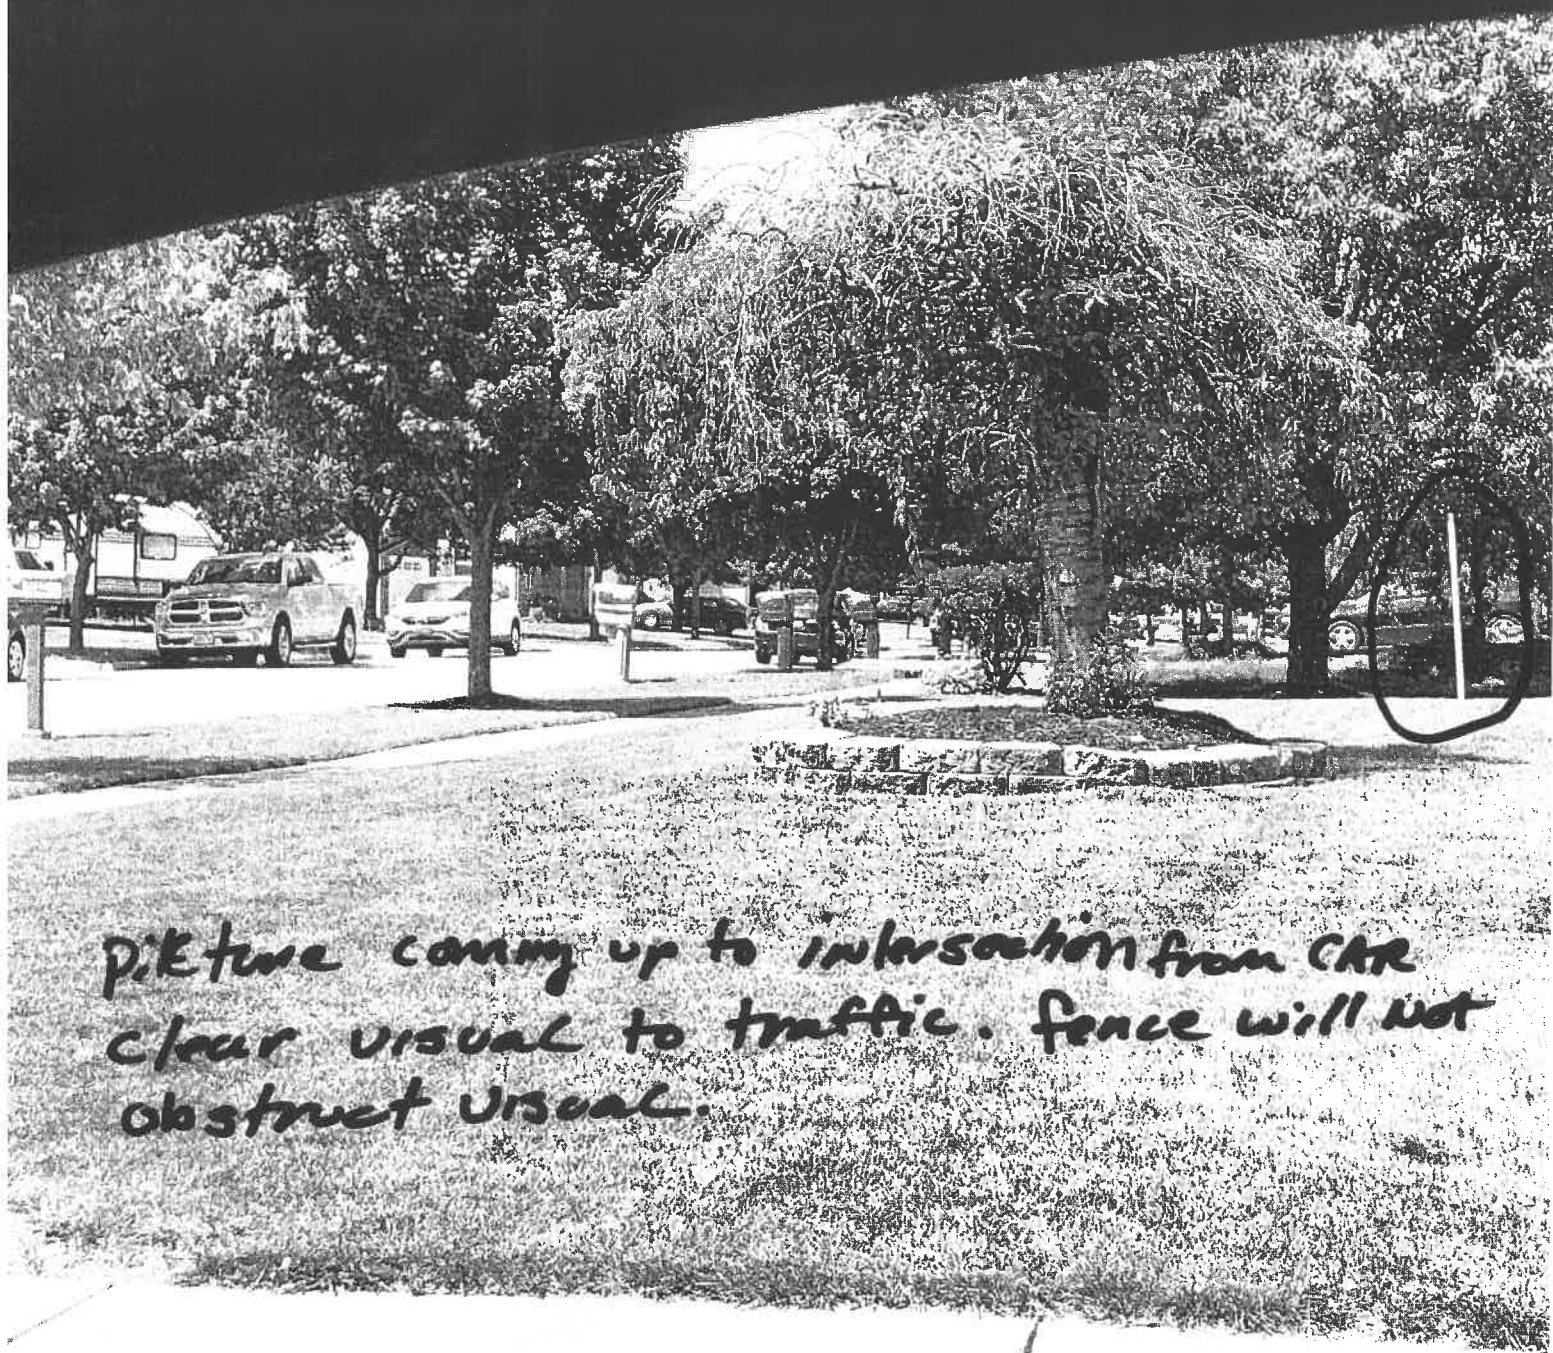 Pikture coming up to intersection from CAR
clear visual to traffic. fence will Not
obstruct visual.